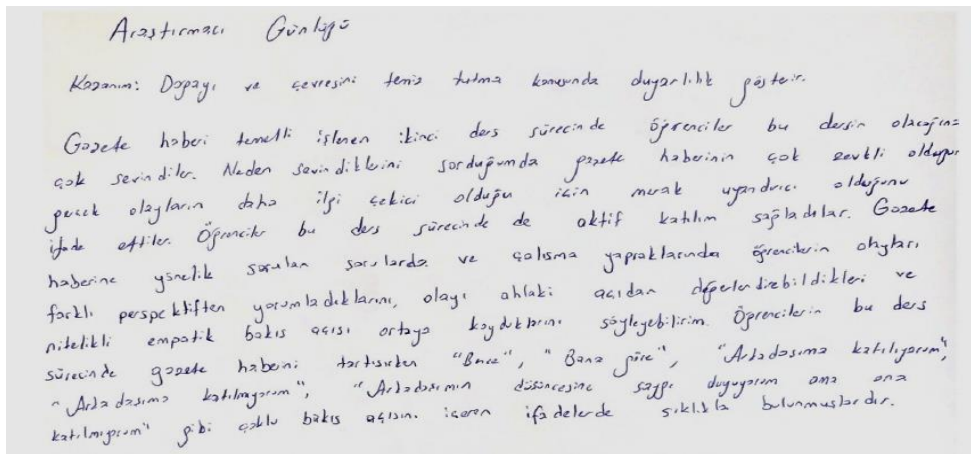 Araştırmacı Günlüğü
Kazanım: Doğayı ve çevresini temiz tutma konusunda duyarlılık gösterir.
Gazete haberi temelli işlenen ikinci ders sürecinde öğrenciler bu dersin olacağına
çok sevindiler. Neden sevindiklerini sorduğumda gazete haberinin çok zevkli olduğu
gerçek olayların daha ilgi çekici olduğu için merak uyandırıcı olduğunu
ifade ettiler. Öğrenciler bu ders sürecinde de aktif katılım sağladılar. Gazete
haberine yönelik sorulan sorularda ve çalışma yapraklarında öğrencilerin olayları
farklı perspektiften yorumladıklarını, olayı ahlaki açıdan değerlendirebildikleri ve
nitelikli empatik bakış açısı ortaya koyduklarını söyleyebilirim. Öğrencilerin bu ders
sürecinde gazete haberini tartışırken "Bence", "Bana göre", "Arkadaşıma katılıyorum",
"Arkadaşıma katılmıyorum", "Arkadaşımın düşüncesine saygı duyuyorum ama ona
katılmıyorum" gibi çoklu bakış açısını içeren ifadelerde sıklıkla bulunmuşlardır.